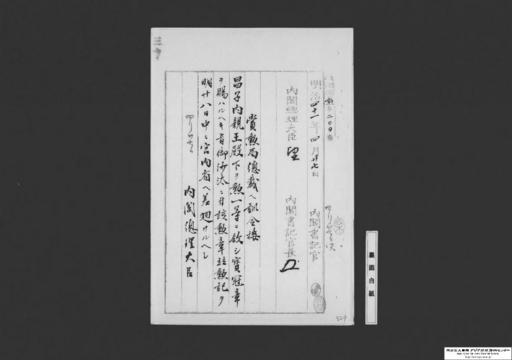 明治四十一年四月廿七日
内閣書記官
内閣總理大臣 望
内閣書記官長
賞勲局總裁ヘ訓令按
昌子内親王殿下ヲ勲一等ニ敍シ寶冠章
ヲ賜ハルヘキ旨御沙汰ニ付該勲章並勲記ヲ
明廿八日中ニ宮内省ヘ差廻サルヘシ
内閣總理大臣
裏面白紙